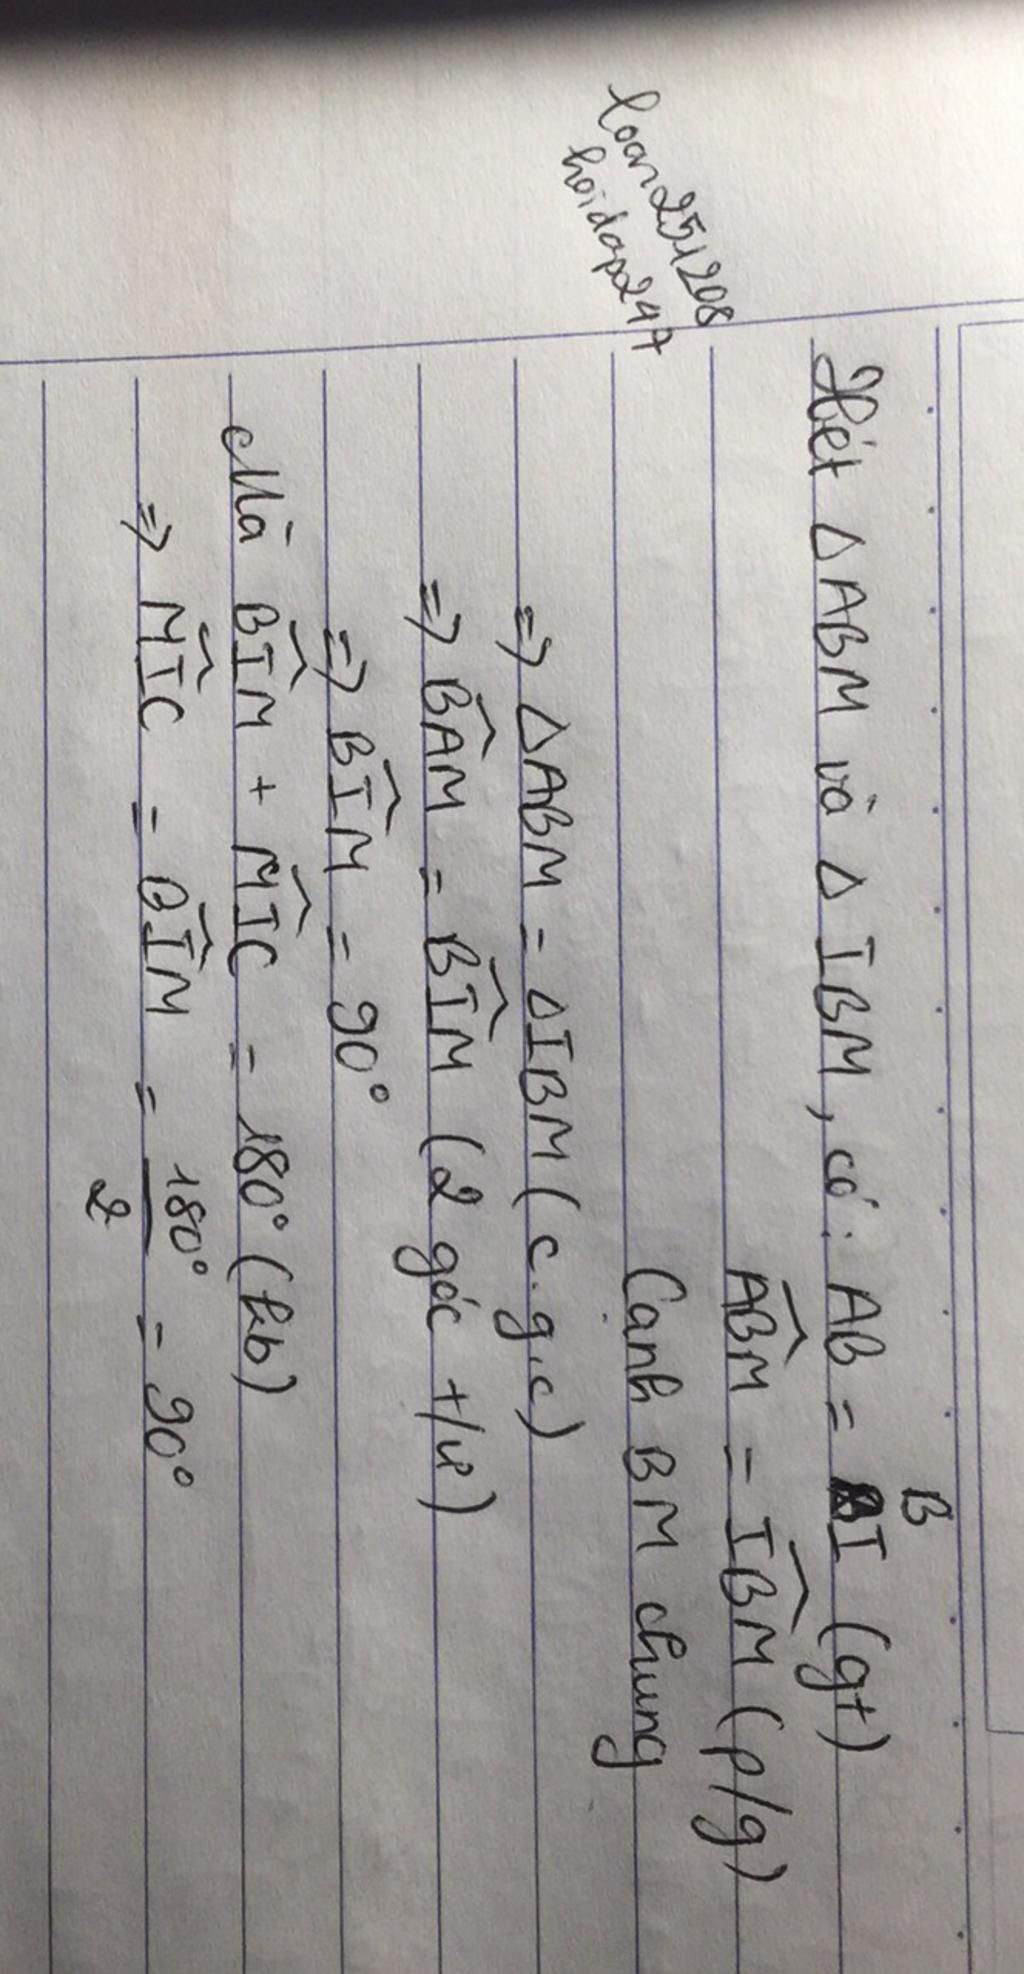 loan251208
hoidap247
Xét ΔABM và Δ IBM, có: AB = BI (gt)
B
ABM = IBM (p/g)
Cạnh BM chung
=> ΔABM = ΔIBM (c.g.c)
=> BAM = BIM (2 góc t/ư)
=> BIM = 90°
Mà BIM + MIC = 180° (kb)
=> MIC = BIM = 180°/2 = 90°